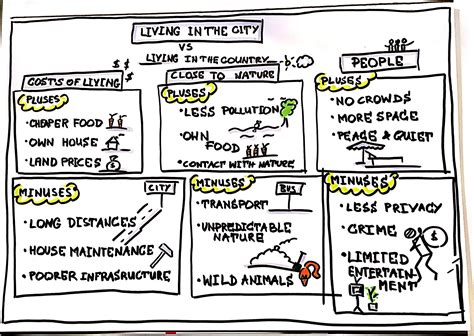 LIVING IN THE CITY
VS
LIVING IN THE COUNTRY
COSTS OF LIVING
$ $ $
PLUSES
• CHEAPER FOOD
• OWN HOUSE
• LAND PRICES $
CLOSE TO NATURE
PLUSES
• LESS POLLUTION
• OWN
FOOD
• CONTACT WITH NATURE
PEOPLE
PLUSES
• NO CROWDS
• MORE SPACE
• PEACE & QUIET
MINUSES
CITY
• LONG DISTANCES
• HOUSE MAINTENANCE
• POORER INFRASRUCTURE
MINUSES
BUS
• TRANSPORT
• UNPREDICTABLE
NATURE
• WILD ANIMALS
MINUSES
• LESS PRIVACY
• CRIME $
• LIMITED
ENTERTAIN-
MENT